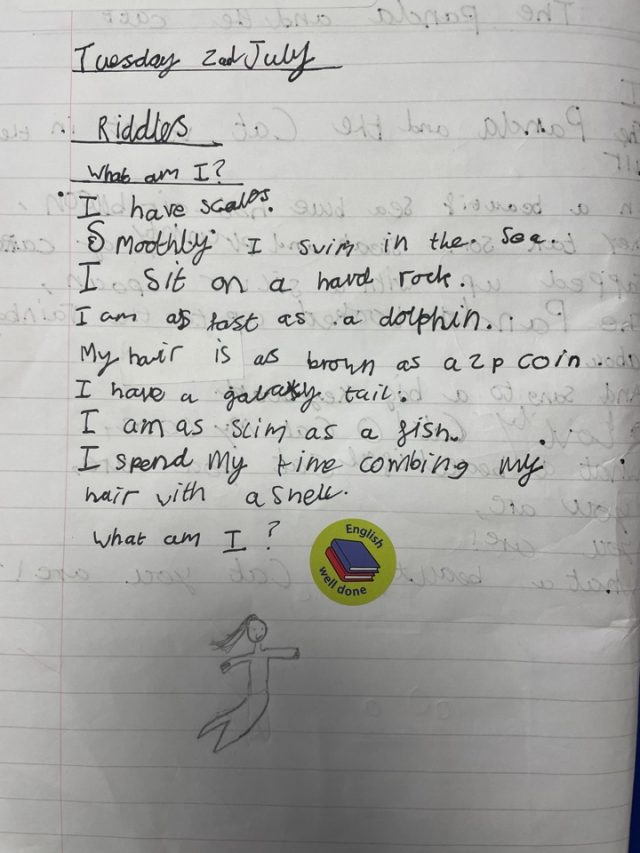 Tuesday 2nd July
Riddles
What am I?
I have scales.
Smoothly I swim in the. Sea.
I sit on a hard rock.
I am as fast as a dolphin.
My hair is as brown as a 2p coin.
I have a galaxy tail.
I am as slim as a fish.
I spend my time combing my
hair with a shell.
What am I?
English
well done